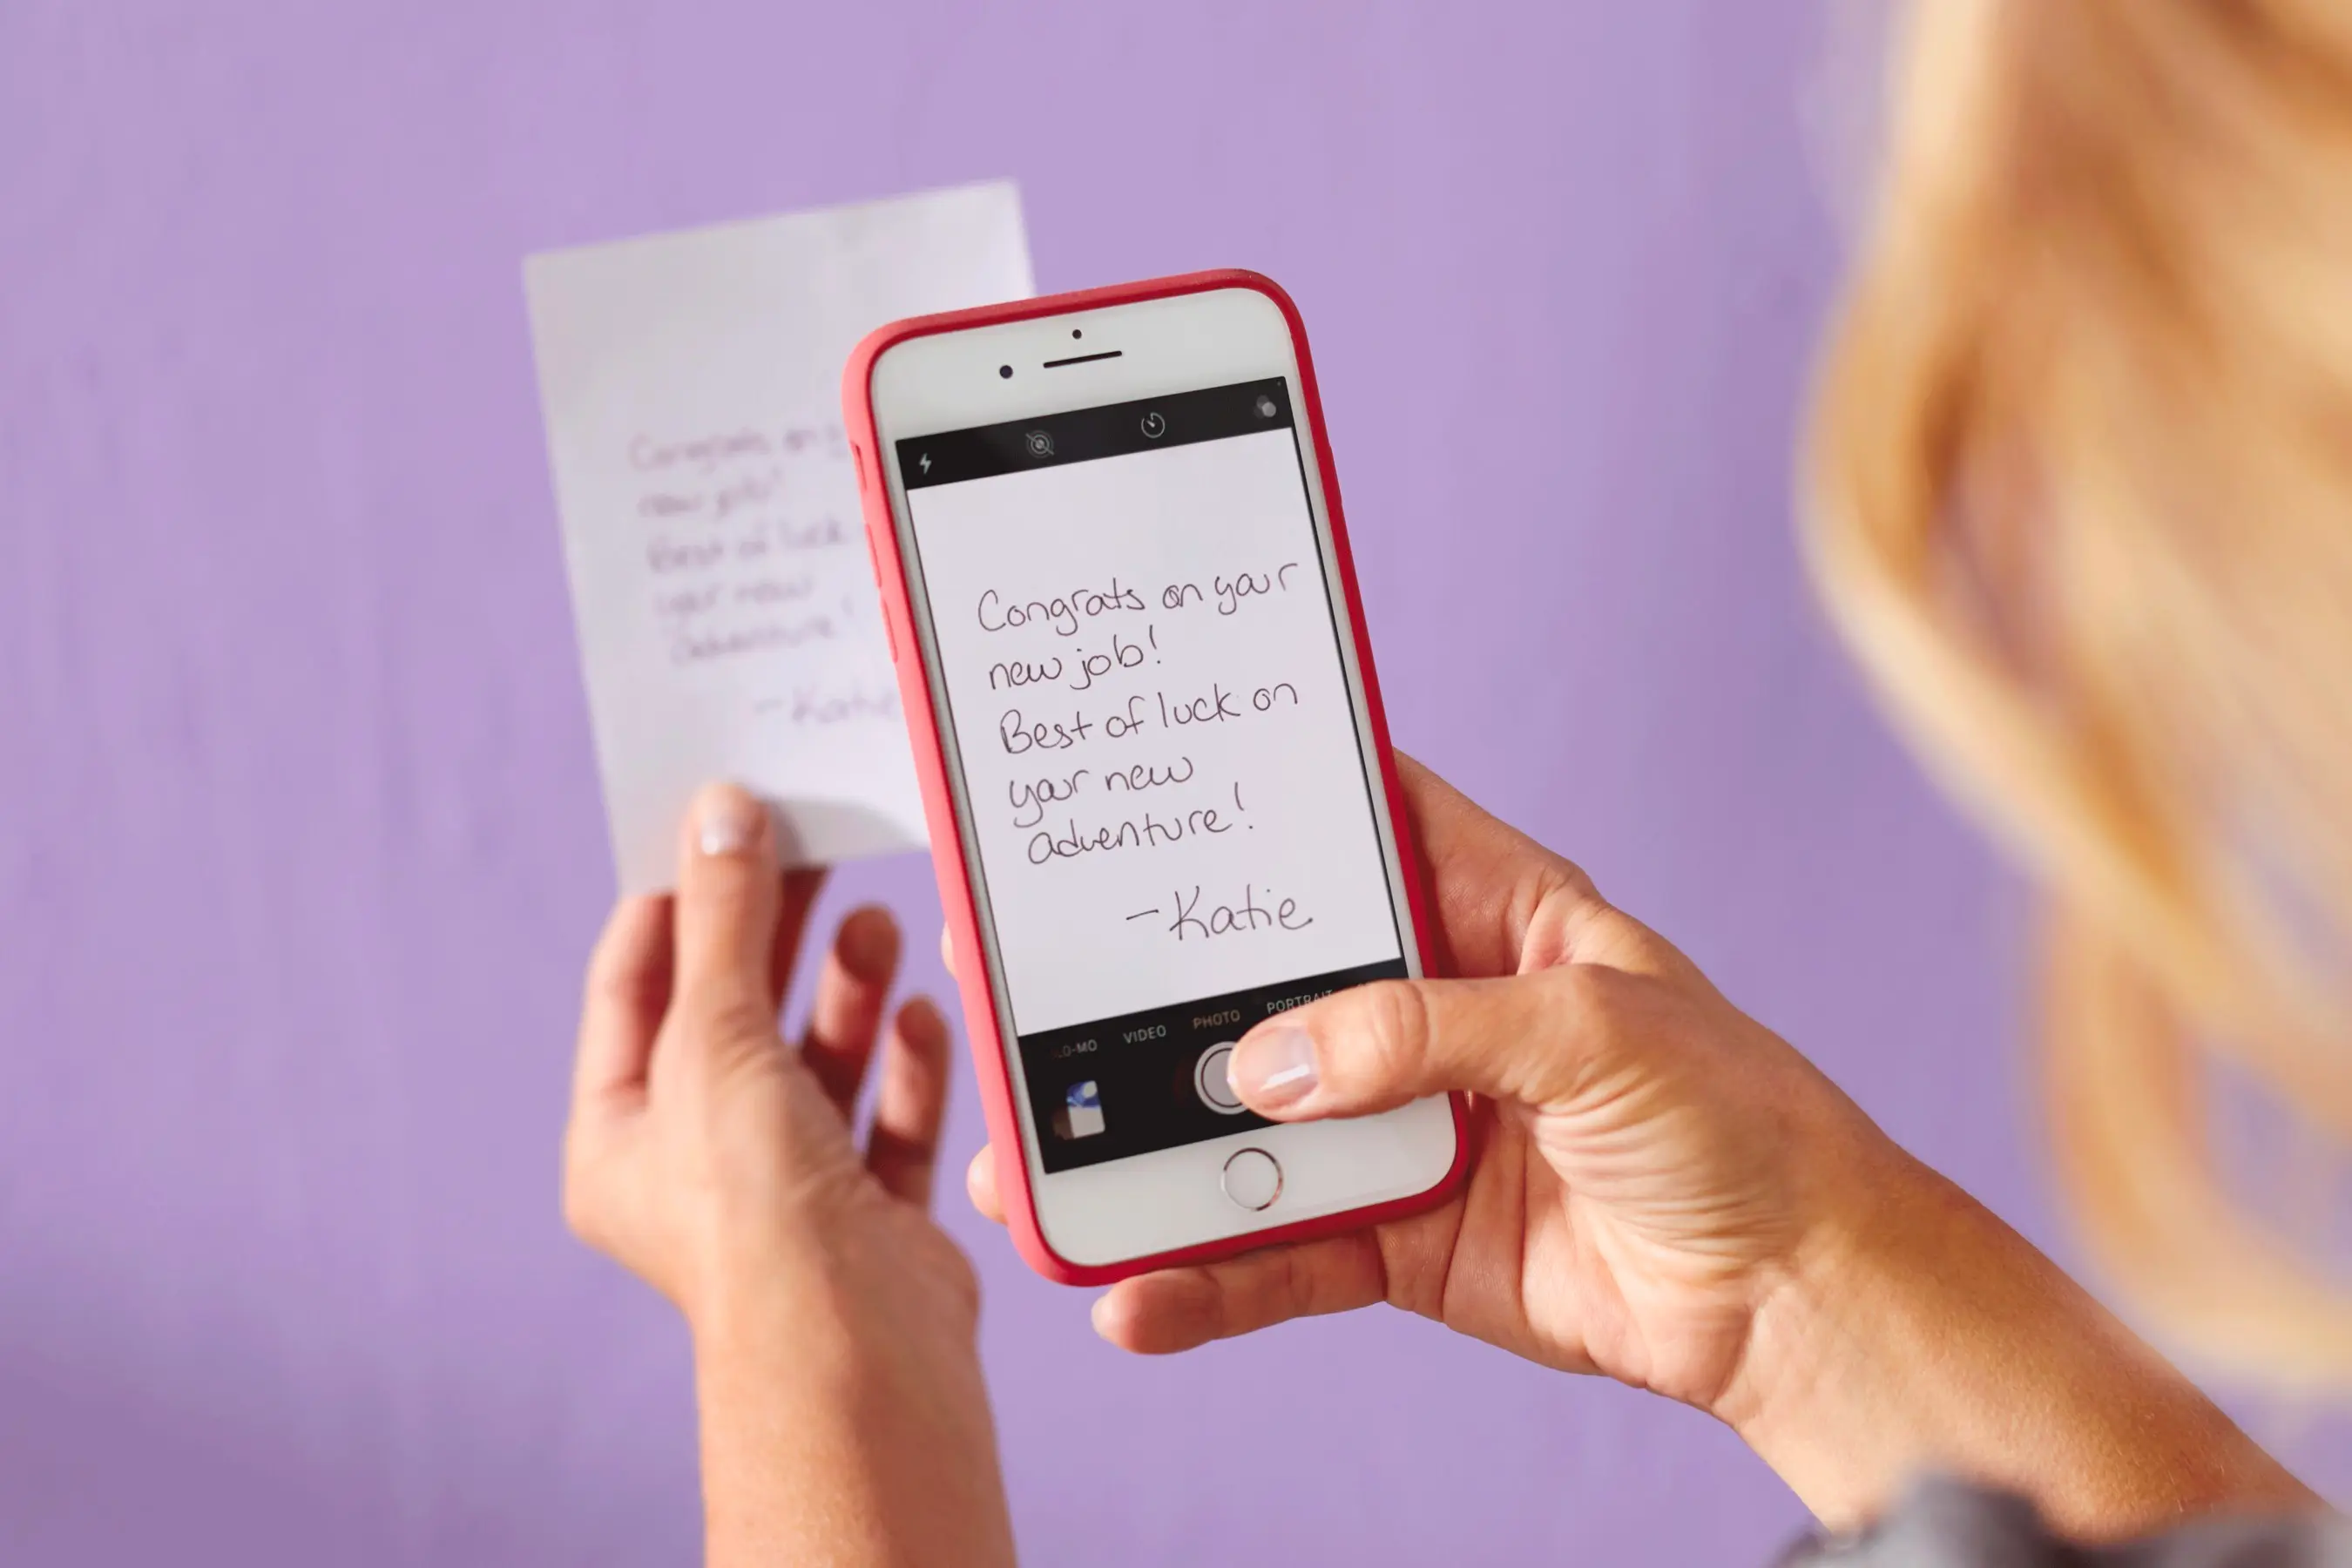 Congrats on your
new job!
Best of luck on
your new
adventure!
-Katie
Congrats on
new job!
Best of luck
your new
adventure!
-Katie
VIDEO
PHOTO
PORTRAIT